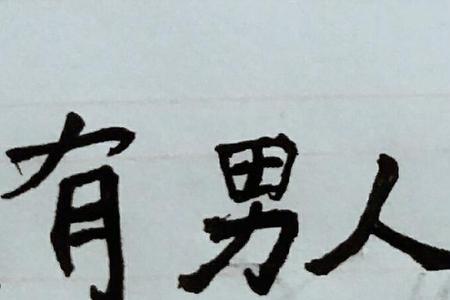 有男人